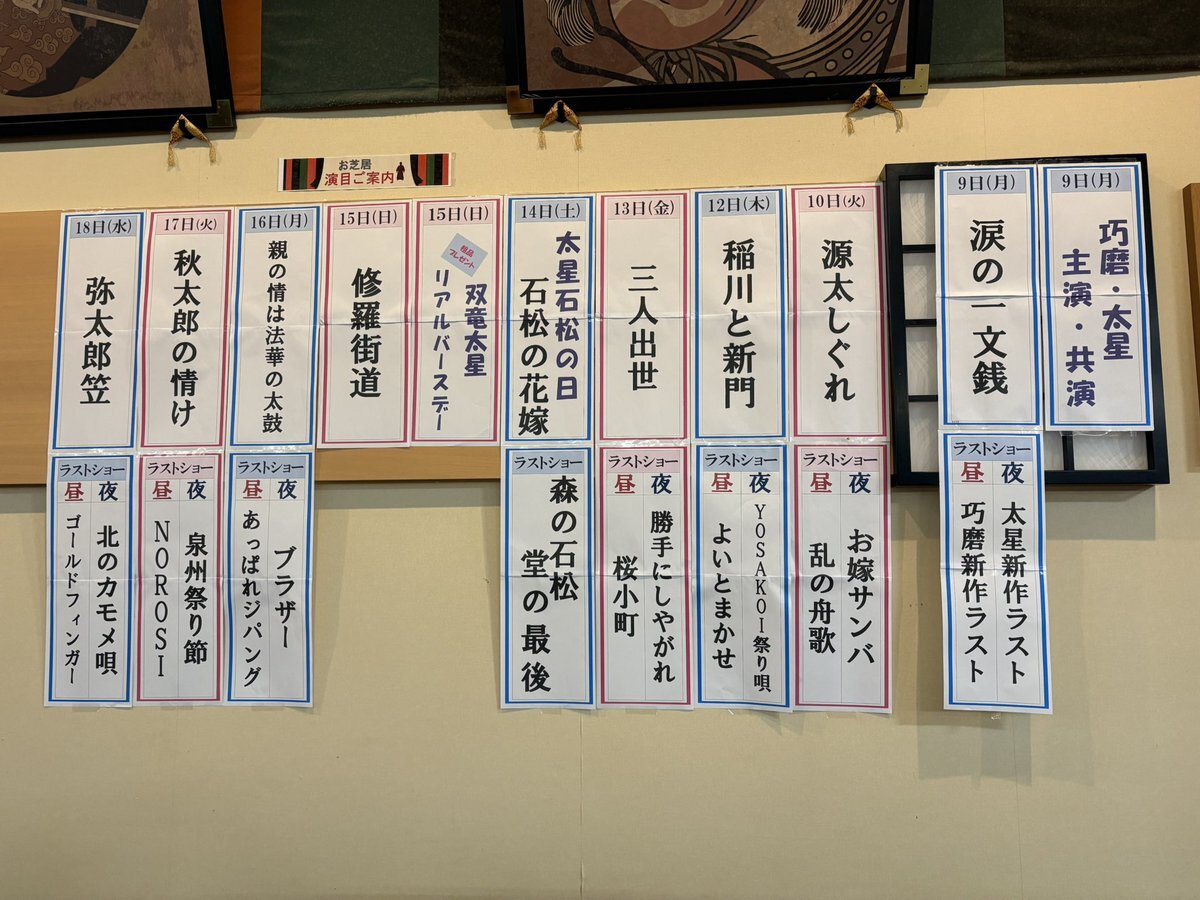 お芝居
演目ご案内
9日(月)
巧磨・太星
主演・共演
9日(月)
涙の一文銭
ラストショー
夜
太星新作ラスト
昼
巧磨新作ラスト
10日(火)
源太しぐれ
ラストショー
夜
お嫁サンバ
昼
乱の舟歌
12日(木)
稲川と新門
ラストショー
夜
YOSAKOI祭り唄
昼
よいとまかせ
13日(金)
三人出世
ラストショー
夜
勝手にしやがれ
昼
桜小町
14日(土)
太星石松の日
石松の花嫁
ラストショー
森の石松
堂の最後
15日(日)
粗品
プレゼント
双竜太星
リアルバースデー
15日(日)
修羅街道
16日(月)
親の情は法華の太鼓
ラストショー
夜
ブラザー
昼
あっぱれジパング
17日(火)
秋太郎の情け
ラストショー
夜
泉州祭り節
昼
NOROSI
18日(水)
弥太郎笠
ラストショー
夜
北のカモメ唄
昼
ゴールドフィンガー